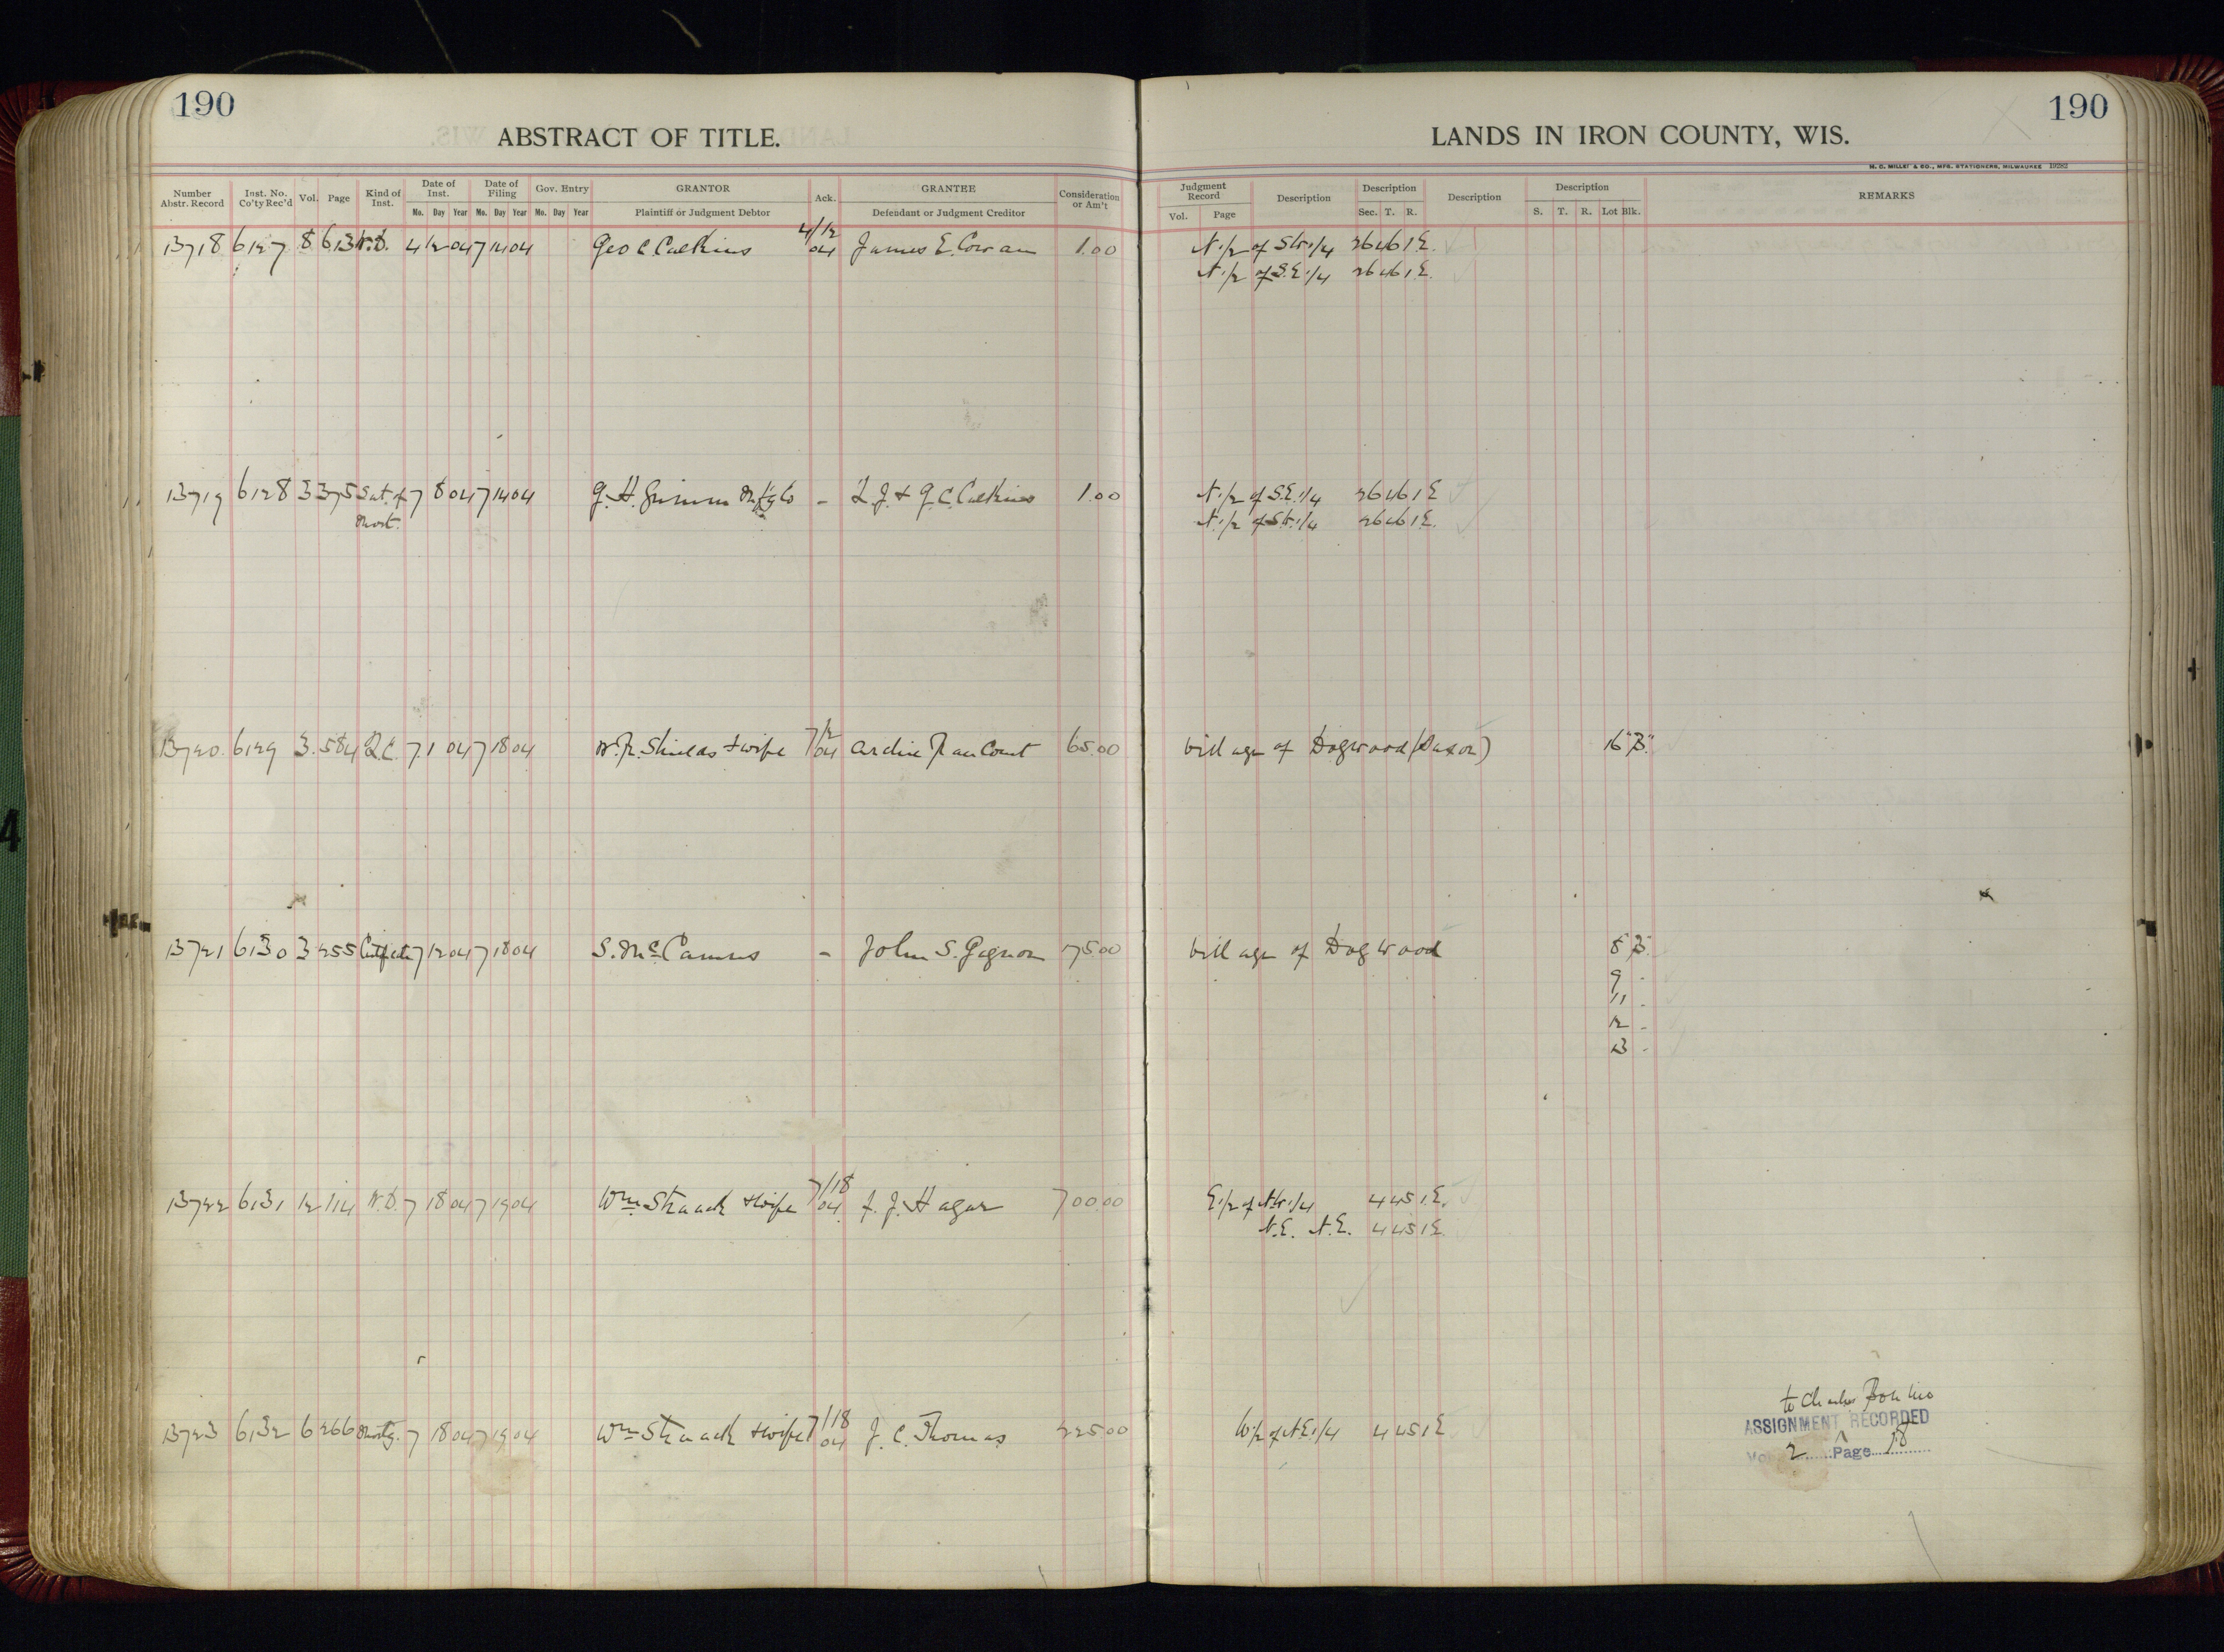 190
190
ABSTRACT OF TITLE.
LANDS IN IRON COUNTY, WIS.
H. C. MILLER CO., MFG. STATIONERS, MILWAUKEE
Number Abstr. Record Inst. No. Co'ty Rec'd Vol. Page Kind of Inst. Date of Inst. Date of Filing Gov. Entry GRANTOR Ack. GRANTEE Consideration or Am't Judgment Record Description Description Description Description REMARKS
Mo. Day Year Mo. Day Year Mo. Day Year Plaintiff or Judgment Debtor Defendant or Judgment Creditor Vol. Page Sec. T. R. S. T. R. Lot Blk.
13718 6127 8 613 W.D. 4 12 04 7 14 04 Geo C Calkins 4/12 04 James E. Cowan 1.00 N.1/2 of S.W.1/4 26 46 1E.
N.1/2 of S.E.1/4 26 46 1E.
13719 6128 3 375 Sat. of Mort. 7 8 04 7 14 04 G. H. Grimm Mfg Co - L. J. & G. C. Calkins 1.00 N.1/2 of S.E.1/4 26 46 1E
N.1/2 of S.W.1/4 26 46 1E.
13720 6129 3 584 Q.C. 7 1 04 7 18 04 W. R. Shields & wife 7/2 04 Archie Rancourt 65.00 Village of Dogwood (Saxon) 16 "B."
13721 6130 3 255 7 12 04 7 18 04 S. McCamus - John S. Gagnon 175.00 Village of Dogwood 8 B.
9 -
11 -
12 -
13 -
13722 6131 12 114 W.D. 7 18 04 7 19 04 Wm Straack & wife 7/18 04 F. J. Hagar 700.00 E.1/2 of N.W.1/4 4 45 1E.
N.E. N.E. 4 45 1E.
to Charles Bonino
13723 6132 6 266 Mortg. 7 18 04 7 19 04 Wm Straack & wife 7/18 04 J. C. Thomas 225.00 W.1/2 of N.E.1/4 4 45 1E ASSIGNMENT RECORDED
Vol 2 Page 18